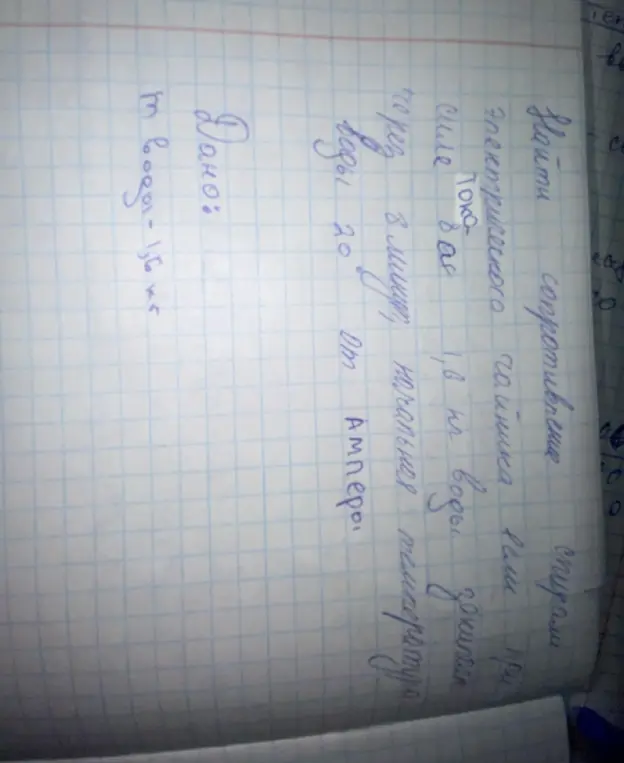 Найти сопротивление спирали
электрического чайника если при
силе Тока 8 ая 1,6 кг воды закипел
через 8 минут, начальная температура
воды 20 От Амперы
Дано:
m воды - 1,6 кг